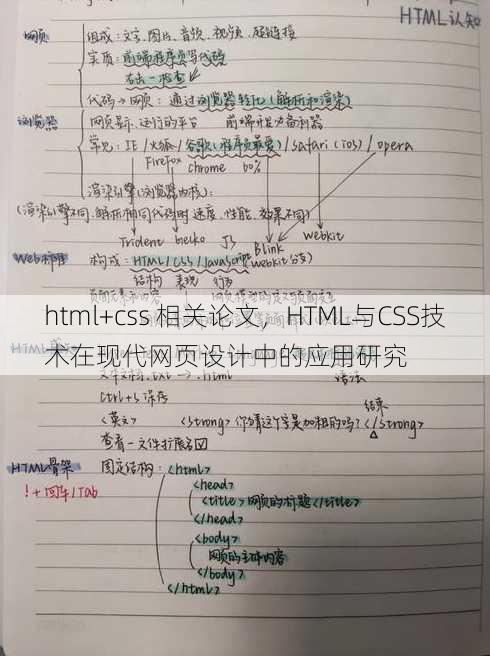 HTML认知
网页
组成：文字、图片、音频、视频、超链接
实质：前端程序员写代码
右击-检查
代码→网页：通过浏览器转化（解析和渲染）
浏览器
网页显示、运行的平台 前端开发必备利器
常见：IE / 火狐 / 谷歌（程序员最爱）/ safari (ios) / opera
FireFox chrome 60%
渲染引擎（浏览器内核）：
（渲染引擎不同，解析相同代码时速度、性能、效果不同）
Trident Gecko JS Blink webkit
(webkit分支)
Web标准
构成：HTML / CSS / JavaScript
结构 表现 行为
html+css 相关论文，HTML与CSS技
术在现代网页设计中的应用研究
.txt → .html 语法
ctrl+s 保存
<英文> <strong> 你猜这个字是加粗的吗？</strong>
结束
查看-文件扩展名☑
HTML骨架
！+ 回车/Tab
固定结构：<html>
<head>
<title>网页的标题</title>
</head>
<body>
网页的主体内容
</body>
</html>